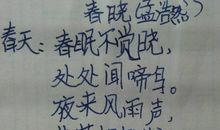 春晓(孟浩然)
春天:春眠不觉晓,
处处闻啼鸟。
夜来风雨声,